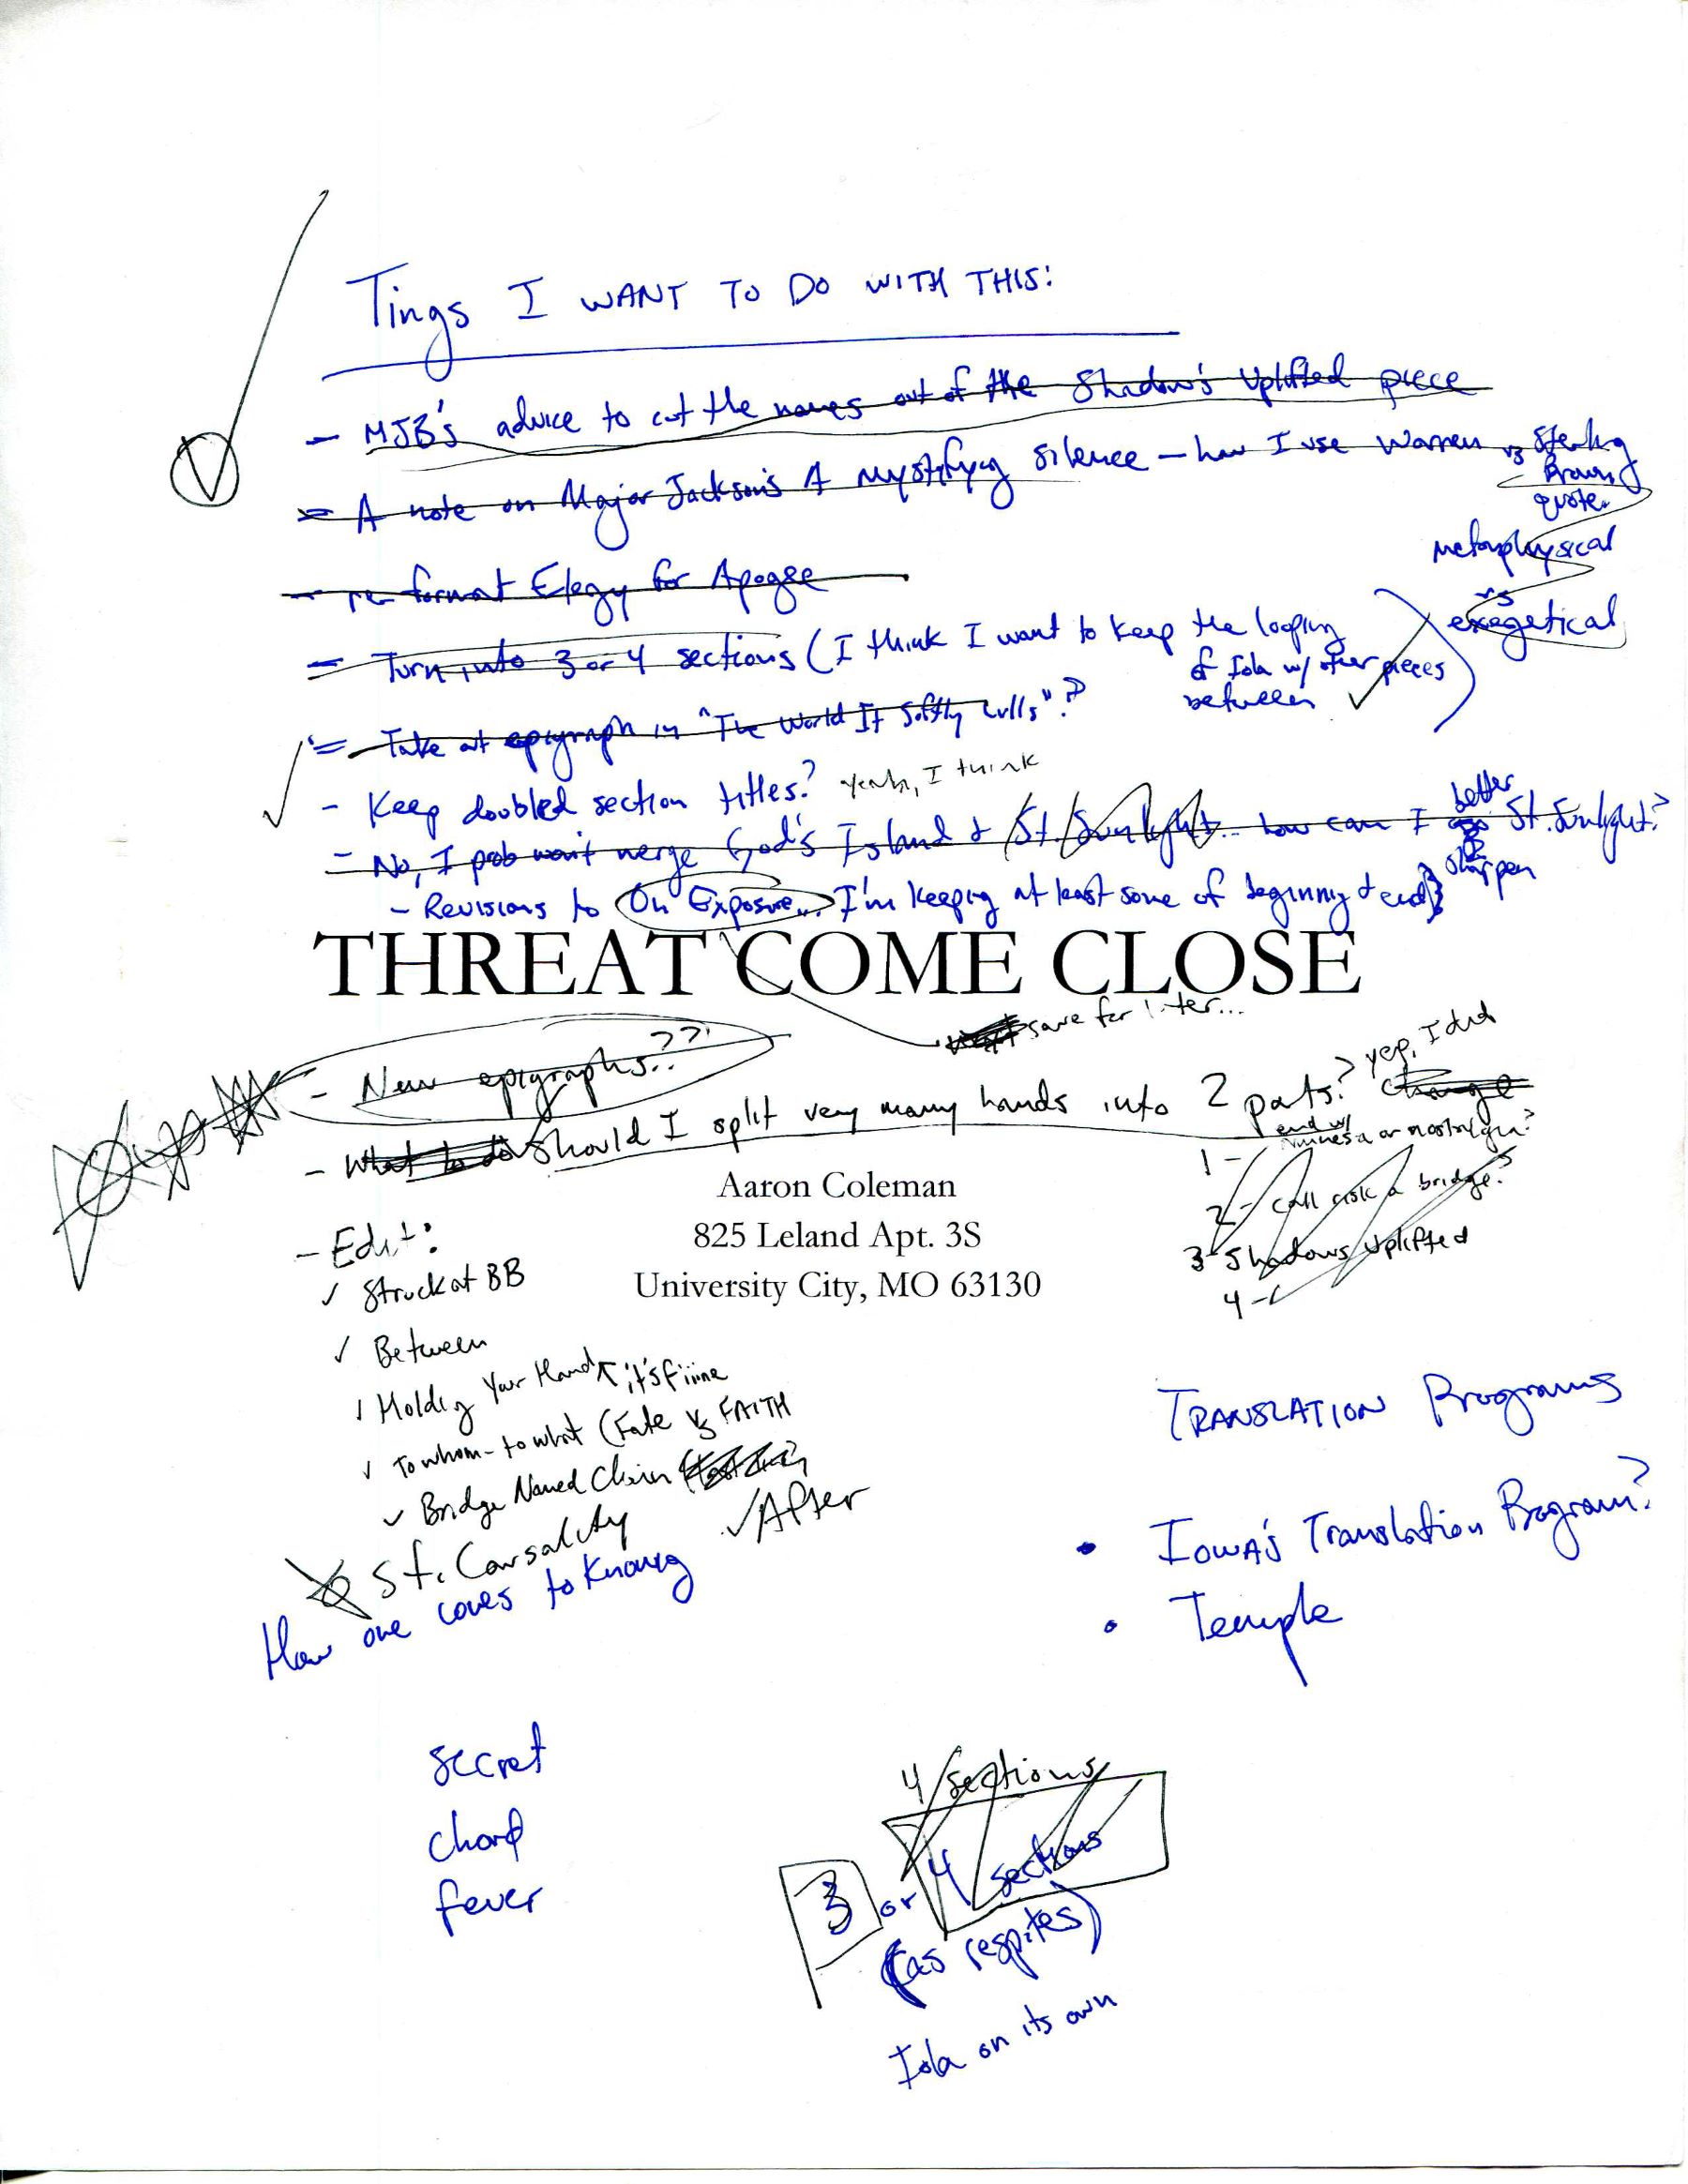 Tings I WANT TO DO WITH THIS:
- MJB's advice to cut the names out of the Shadow's Uplifted piece
- A note on Major Jackson's A mystifying silence - how I use Warren vs Sterling
Brown
quote
metaphysical
vs
exegetical
- re-format Elegy for Apogee
- Turn into 3 or 4 sections (I think I want to keep the looping
of Iola w/ other pieces
between
- Take out epigraph in "The World It Softly Lulls"?
- Keep doubled section titles? yeah, I think
- No, I prob won't merge God's Island & St. Sunlight... how can I better St. Sunlight?
sharpen
- Revisions to On Exposure... I'm keeping at least some of beginning & end
THREAT COME CLOSE
save for later...
- New epigraphs???
- What to do Should I split very many hands into 2 parts? yep, I did
Change
1 - end w/ or nostalgia?
2 - call risk a bridge?
3 - Shadows Uplifted
4 -
Aaron Coleman
825 Leland Apt. 3S
University City, MO 63130
- Edit:
✓ Struck at BB
✓ Between
✓ Holding Your Hand it's fiiine
✓ To whom - to what (Fate vs FAITH
✓ Bridge Named Chain
✓ After
St. Causality
How one comes to Knowing
TRANSLATION Programs
• IOWA's Translation Program?
• Temple
secret
chord
fever
4 sections
3 or 4 sections
(as respites)
Iola on its own